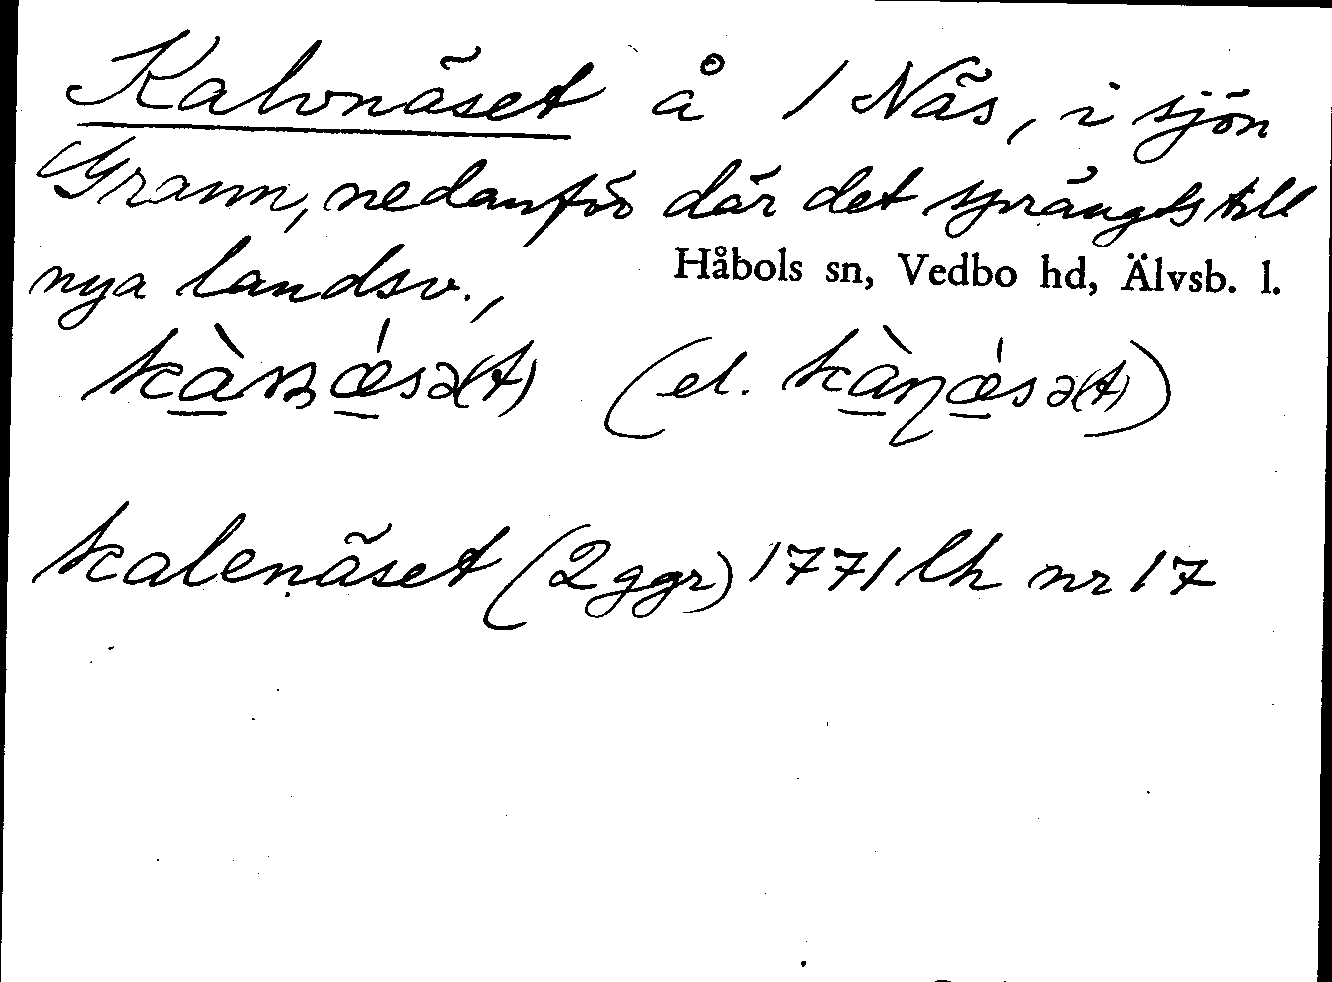 Kalvnäset å 1 Näs, i sjön
Grann, nedanför där det sprängts till
nya landsv., Håbols sn, Vedbo hd, Älvsb. l.
kànǽsə(t) (el. kàɳǽsə(t))
kalenäset (2 ggr) 1771 lh nr 17